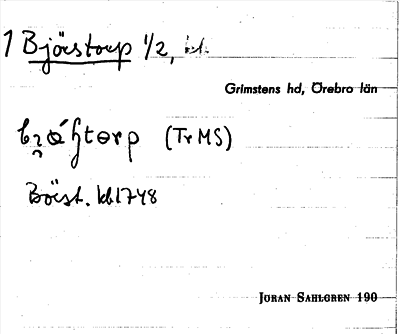 1 Bjöstorp 1/2, kb.
Grimstens hd, Örebro län
(Tr MS)
Böst. kb 1748
JÖRAN SAHLGREN 190